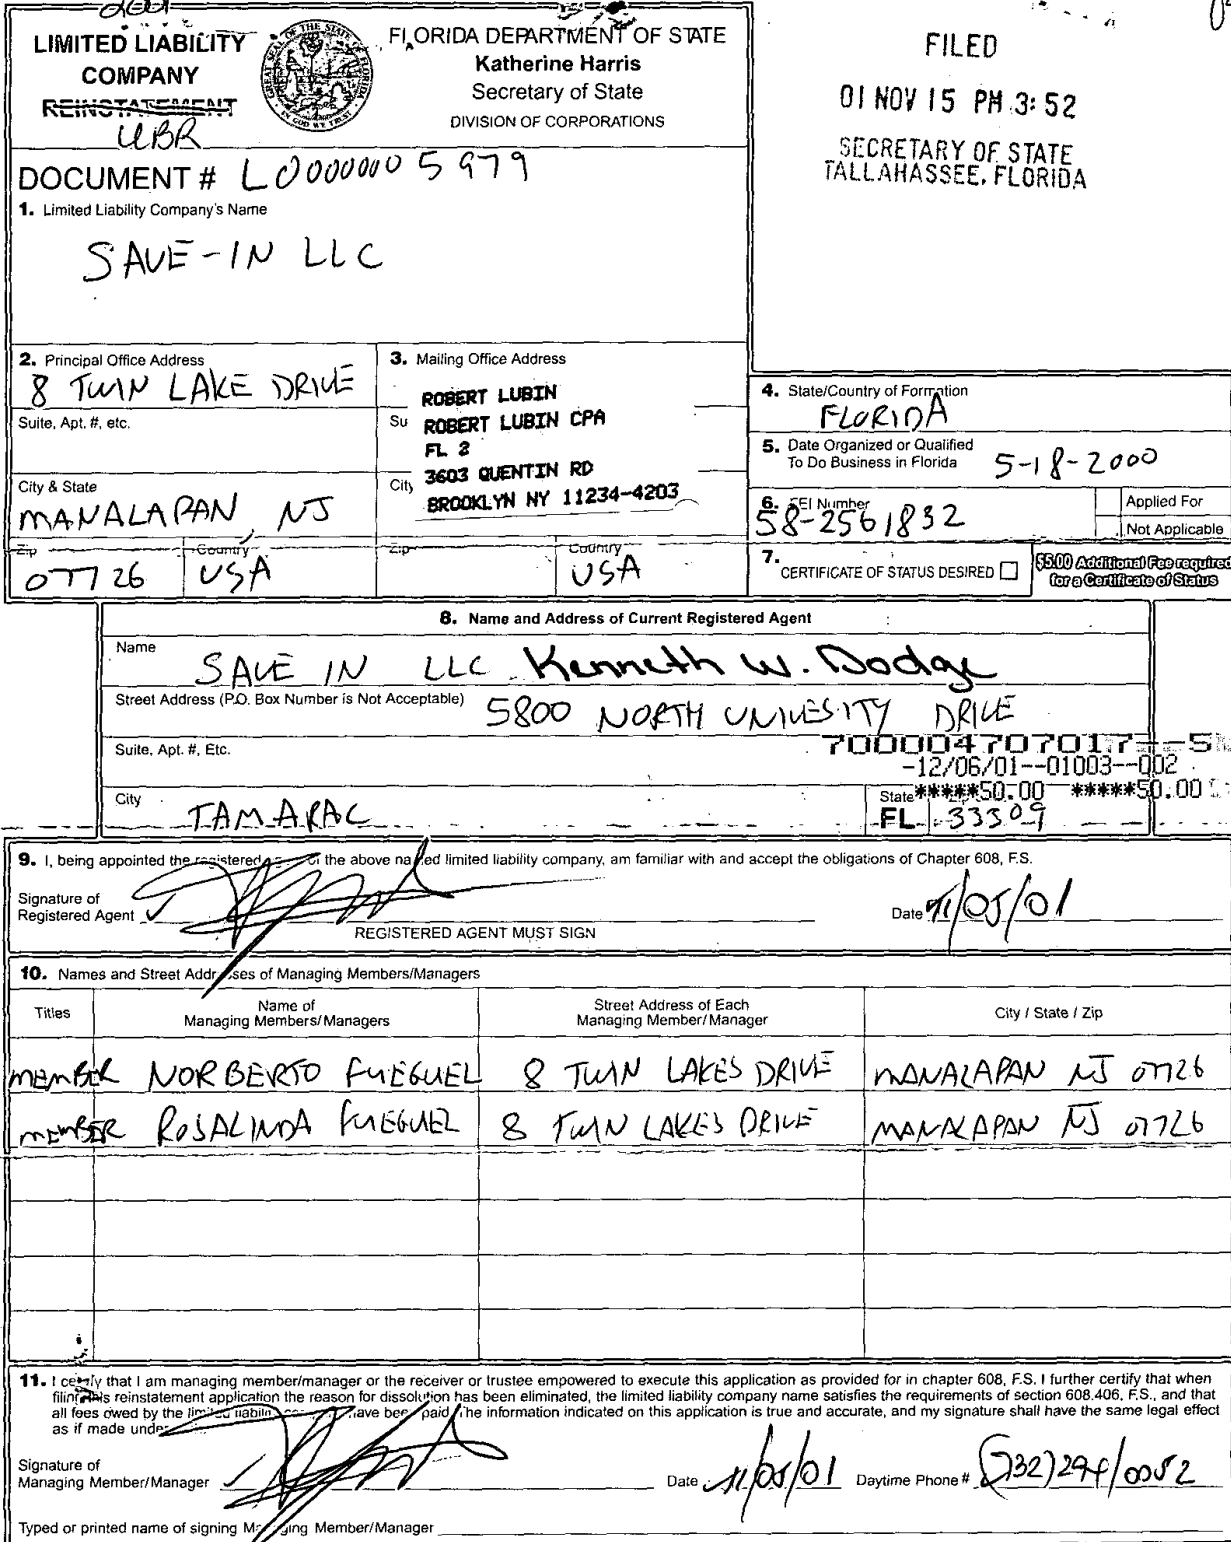 LIMITED LIABILITY
COMPANY
REINSTATEMENT
UBR
FLORIDA DEPARTMENT OF STATE
Katherine Harris
Secretary of State
DIVISION OF CORPORATIONS
FILED
01 NOV 15 PM 3:52
SECRETARY OF STATE
TALLAHASSEE, FLORIDA
DOCUMENT # L00000005979
1. Limited Liability Company's Name
SAVE-IN LLC
2. Principal Office Address
8 TWIN LAKE DRIVE
Suite, Apt. #, etc.
City & State
MANALAPAN, NJ
Zip
07726
Country
USA
3. Mailing Office Address
ROBERT LUBIN
Su ROBERT LUBIN CPA
FL 2
3603 QUENTIN RD
City BROOKLYN NY 11234-4203
Zip
Country
USA
4. State/Country of Formation
FLORIDA
5. Date Organized or Qualified
To Do Business in Florida 5-18-2000
6. FEI Number
58-2561832
Applied For
Not Applicable
7. CERTIFICATE OF STATUS DESIRED
$5.00 Additional Fee required
for a Certificate of Status
8. Name and Address of Current Registered Agent
Name
SAVE IN LLC Kenneth W. Dodge
Street Address (P.O. Box Number is Not Acceptable) 5800 NORTH UNIVESITY DRIVE
Suite, Apt. #, Etc.
700004707017--5
-12/06/01--01003--002
*****50.00 *****50.00
City
TAMARAC
State
FL 33309
9. I, being appointed the registered of the above named limited liability company, am familiar with and accept the obligations of Chapter 608, F.S.
Signature of
Registered Agent
Date 11/05/01
REGISTERED AGENT MUST SIGN
10. Names and Street Addresses of Managing Members/Managers
Titles
Name of
Managing Members/Managers
Street Address of Each
Managing Member/Manager
City / State / Zip
MEMBER NORBERTO FUEGUEL 8 TWIN LAKES DRIVE MANALAPAN NJ 07726
MEMBER ROSALINDA FUEGUEL 8 TWIN LAKES DRIVE MANALAPAN NJ 07726
11. I certify that I am managing member/manager or the receiver or trustee empowered to execute this application as provided for in chapter 608, F.S. I further certify that when
filing this reinstatement application the reason for dissolution has been eliminated, the limited liability company name satisfies the requirements of section 608.406, F.S., and that
all fees owed by the limited liability have been paid. The information indicated on this application is true and accurate, and my signature shall have the same legal effect
as if made under
Signature of
Managing Member/Manager
Date 11/05/01 Daytime Phone # (732)294/0052
Typed or printed name of signing Managing Member/Manager